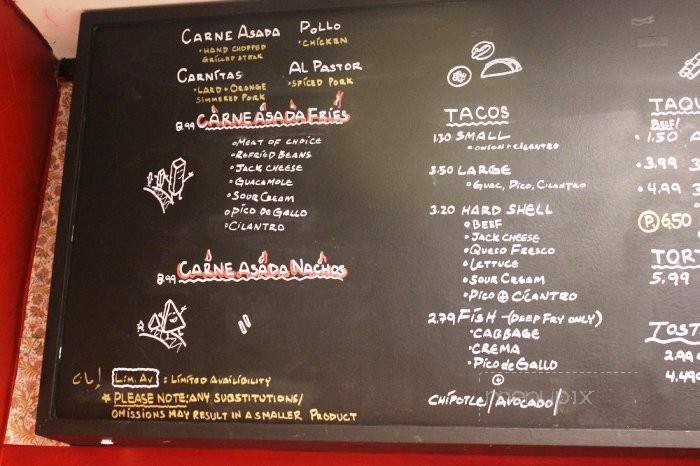 CARNE ASADA
• HAND CHOPPED
GRILLED STEAK
POLLO
• CHICKEN
CARNITAS
• LARD + ORANGE
SIMMERED PORK
AL PASTOR
• SPICED PORK
8.99 CARNE ASADA FRIES
• MEAT OF CHOICE
• REFRIED BEANS
• JACK CHEESE
• GUACAMOLE
• SOUR CREAM
• PICO DE GALLO
• CILANTRO
8.99 CARNE ASADA NACHOS
LIM. AV : LIMITED AVAILIBILITY
* PLEASE NOTE: ANY SUBSTITUTIONS/
OMISSIONS MAY RESULT IN A SMALLER PRODUCT
TACOS
1.30 SMALL
• ONION + CILANTRO
3.50 LARGE
• GUAC, PICO, CILANTRO
3.20 HARD SHELL
• BEEF
• JACK CHEESE
• QUESO FRESCO
• LETTUCE
• SOUR CREAM
• PICO + CILANTRO
2.79 FISH - (DEEP FRY ONLY)
• CABBAGE
• CREMA
• PICO DE GALLO
+
CHIPOTLE / AVOCADO /
menupix
BEEF/
• 1.50
• 3.99
• 4.99
6.50
5.99
2.99
4.49